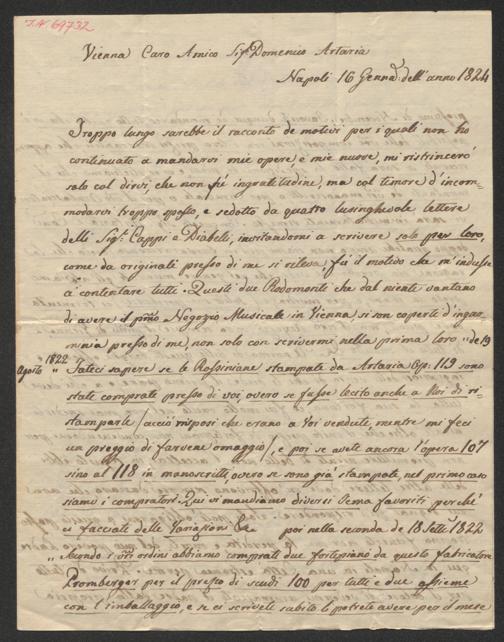 I.N. 69732
Vienna Caro Amico Sigr Domenico Artaria
Napoli 16 Gennro dell'anno 1824
Troppo lungo sarebbe il racconto de motivi per i quali non ho
continuato a mandarvi mie opere, e mie nuove, mi ristrincerò
solo col dirvi, che non fù ingratitudine, ma col timore d'incom-
modarvi troppo spesso, e sedotto da quattro lusinghevole lettere
delli Sigri Cappi e Diabelli, incitandomi a scrivere solo per loro,
come da originali presso di me si rileva fù il motivo che m'indusse
a contentare tutti. Questi due Rodomonte che dal niente vantano
di avere il pmo Negozio Musicale in Vienna si son coperti d'igno
minia presso di me, non solo con scrivermi nella prima loro "de 19
Agosto 1822 " Fateci sapere se le Rossiniane stampate da Artaria Op: 119 sono
state comprate presso di voi, overo se fusse lecito anche a Noi di ri-
stamparle / acciò risposi che erano a Voi vendute, mentre mi feci
un preggio di farvene omaggio /, e poi se avete ancora l'opera 107
sino al 118 in manoscritti, overo se sono già stampate, nel primo caso
siamo i compratori. Qui vi mandiamo diversi Tema favoriti perchè
ci facciate delle Variazioni &c poi nella seconda de 18 Settre 1822
" Secondo i vri ordini abbiamo comprati due fortepiano da questo fabricatore
Promberger per il prezzo di scudi 100 per tutti e due assieme
con l'imballaggio, e se ci scrivete subito li potrete avere per il mese